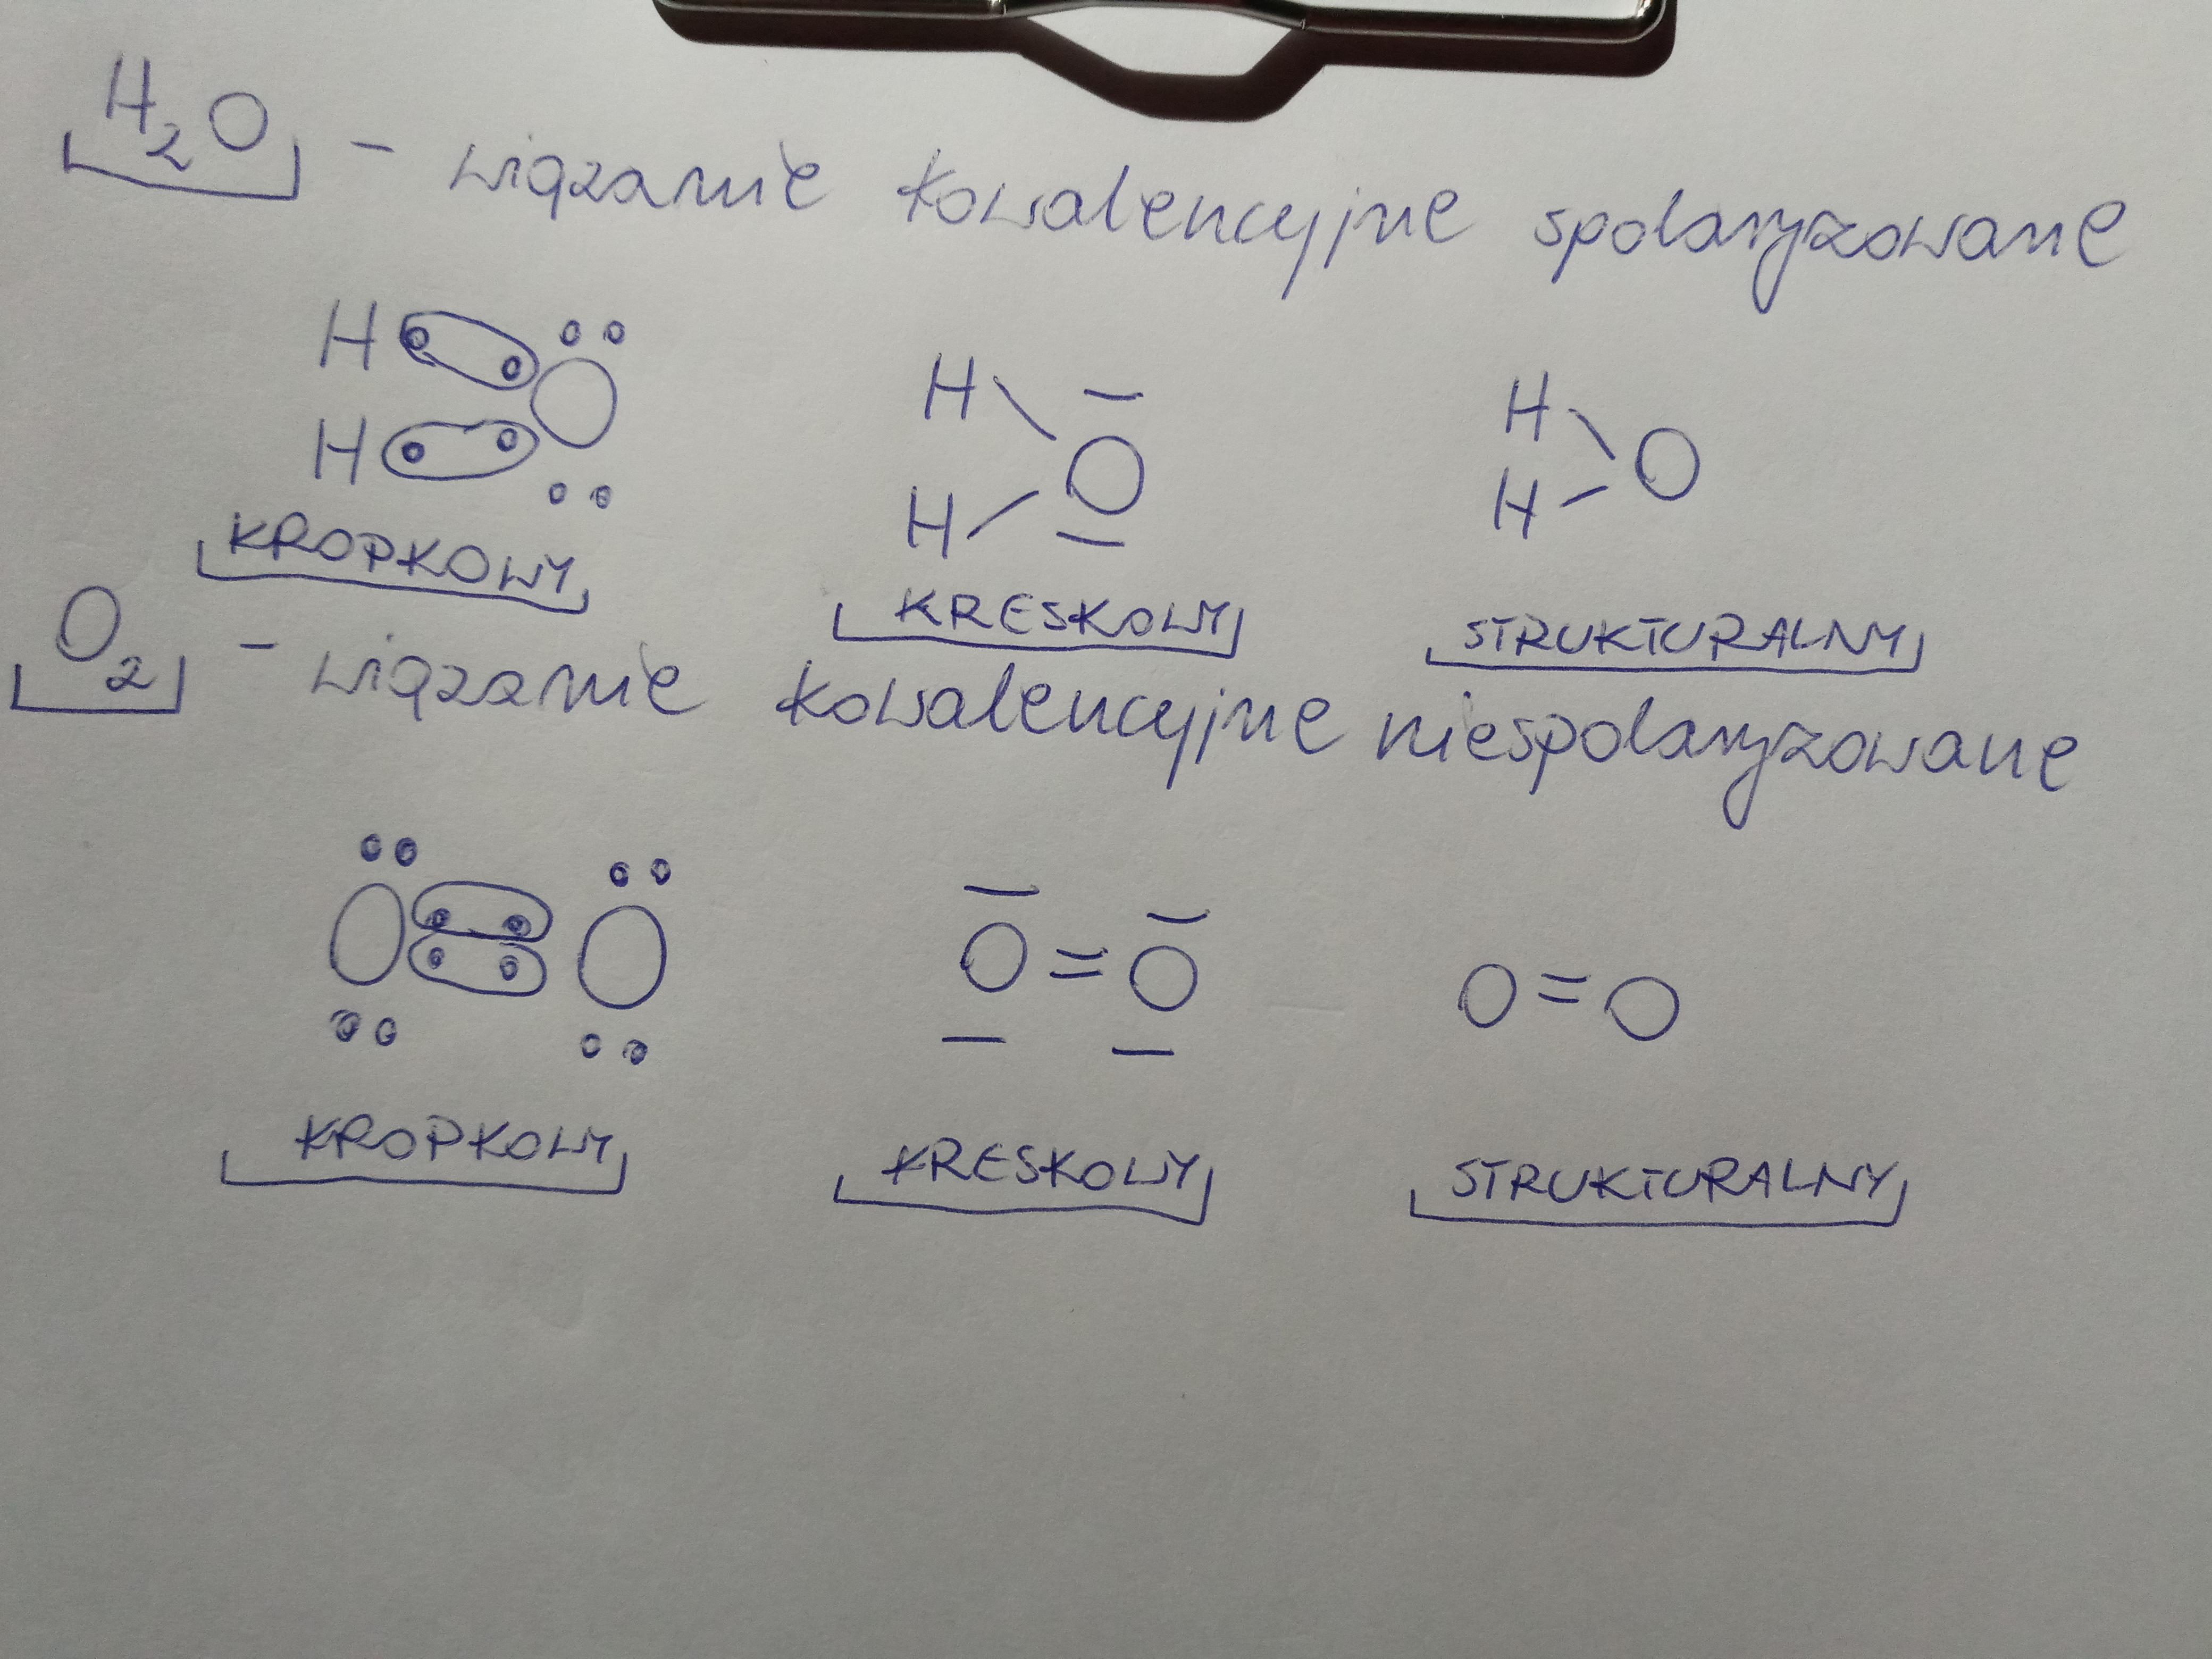 H₂O - wiązanie kowalencyjne spolaryzowane
H O H O H O
H H H
KROPKOWY KRESKOWY STRUKTURALNY
O₂ - wiązanie kowalencyjne niespolaryzowane
O O O = O O = O
KROPKOWY KRESKOWY STRUKTURALNY